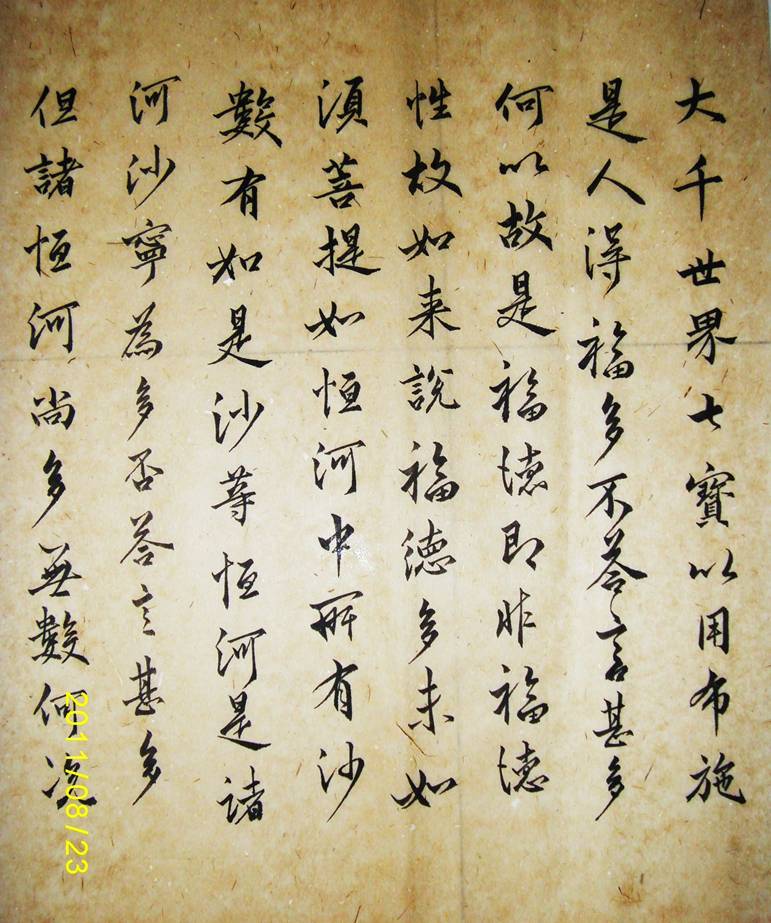 大千世界七寶以用布施
是人得福多不答言甚多
何以故是福德即非福德
性故如来說福德多未如
須菩提如恒河中所有沙
數有如是沙等恒河是諸
河沙寧為多否答言甚多
但諸恒河尚多無數何況
2011/08/23